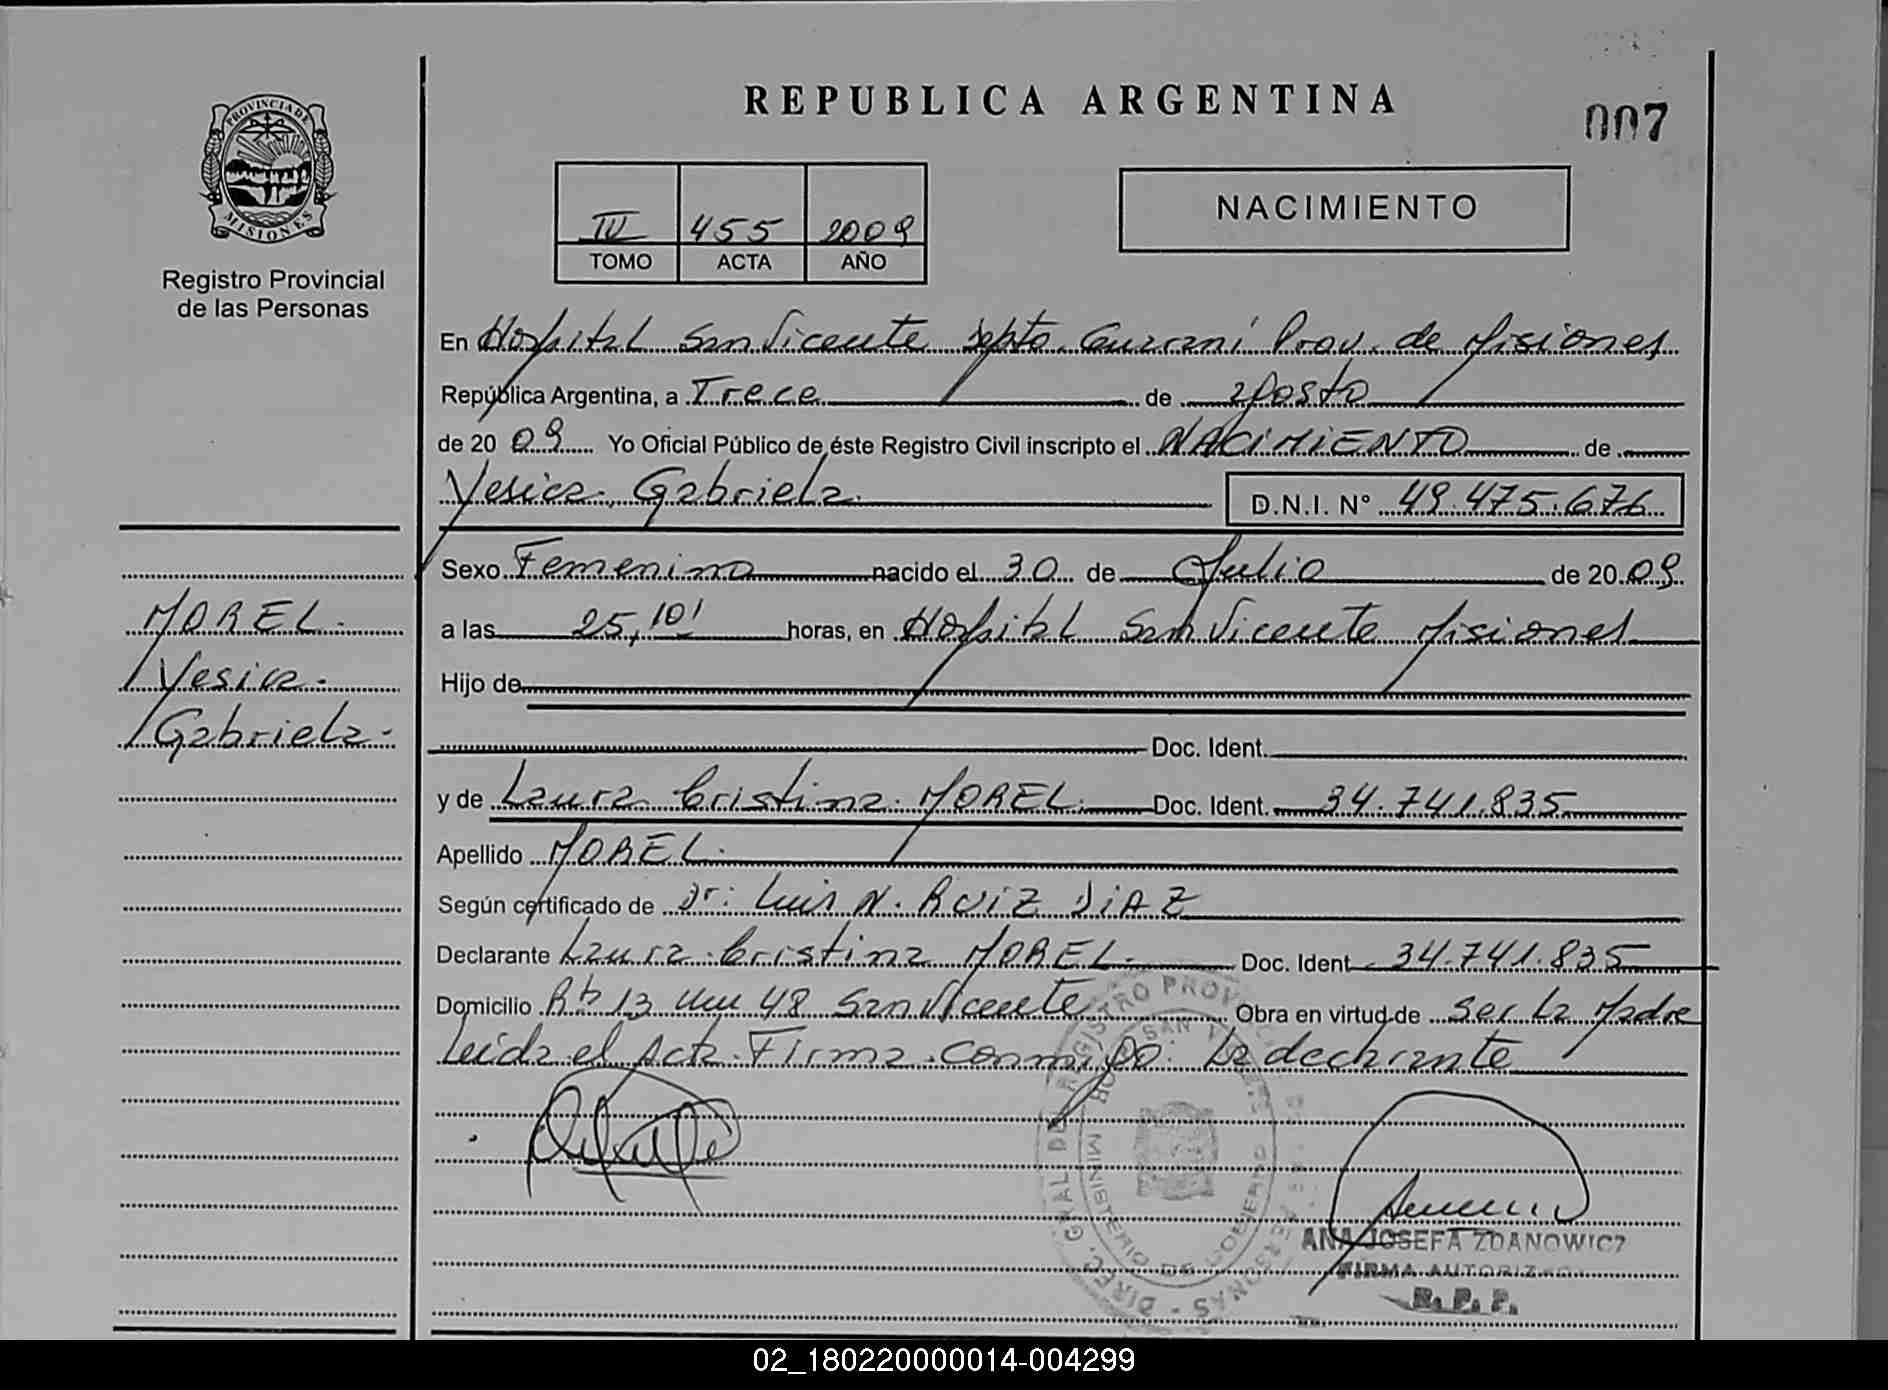 PROVINCIA DE
MISIONES
Registro Provincial
de las Personas
REPUBLICA ARGENTINA
007
III 455 2009
TOMO ACTA AÑO
NACIMIENTO
En Hospital San Vicente Dpto. Guarani Prov. de Misiones
República Argentina, a Trece de agosto
de 20 09 Yo Oficial Público de éste Registro Civil inscripto el NACIMIENTO de
Yesica Gabriela
D.N.I. N° 49.475.676
Sexo Femenino nacido el 30 de Julio de 20 09
a las 25,10' horas, en Hospital San Vicente Misiones
Hijo de
Doc. Ident.
y de Laura Cristina MOREL. Doc. Ident. 34.741.835
Apellido MOREL.
Según certificado de Dr: Luis N. RUIZ DIAZ
Declarante Laura Cristina MOREL. Doc. Ident 34.741.835
Domicilio 13 48 San Vicente Obra en virtud de Ser la Madre
Leida el Acta Firma conmigo la declarante
MOREL.
Yesica.
Gabriela.
DIREC. GRAL DEL REGISTRO PROV PERSONAS
MINISTERIO DE GOBIERNO
ANA JOSEFA ZDANOWICZ
FIRMA AUTORIZADA
R. P. P.
02_180220000014-004299